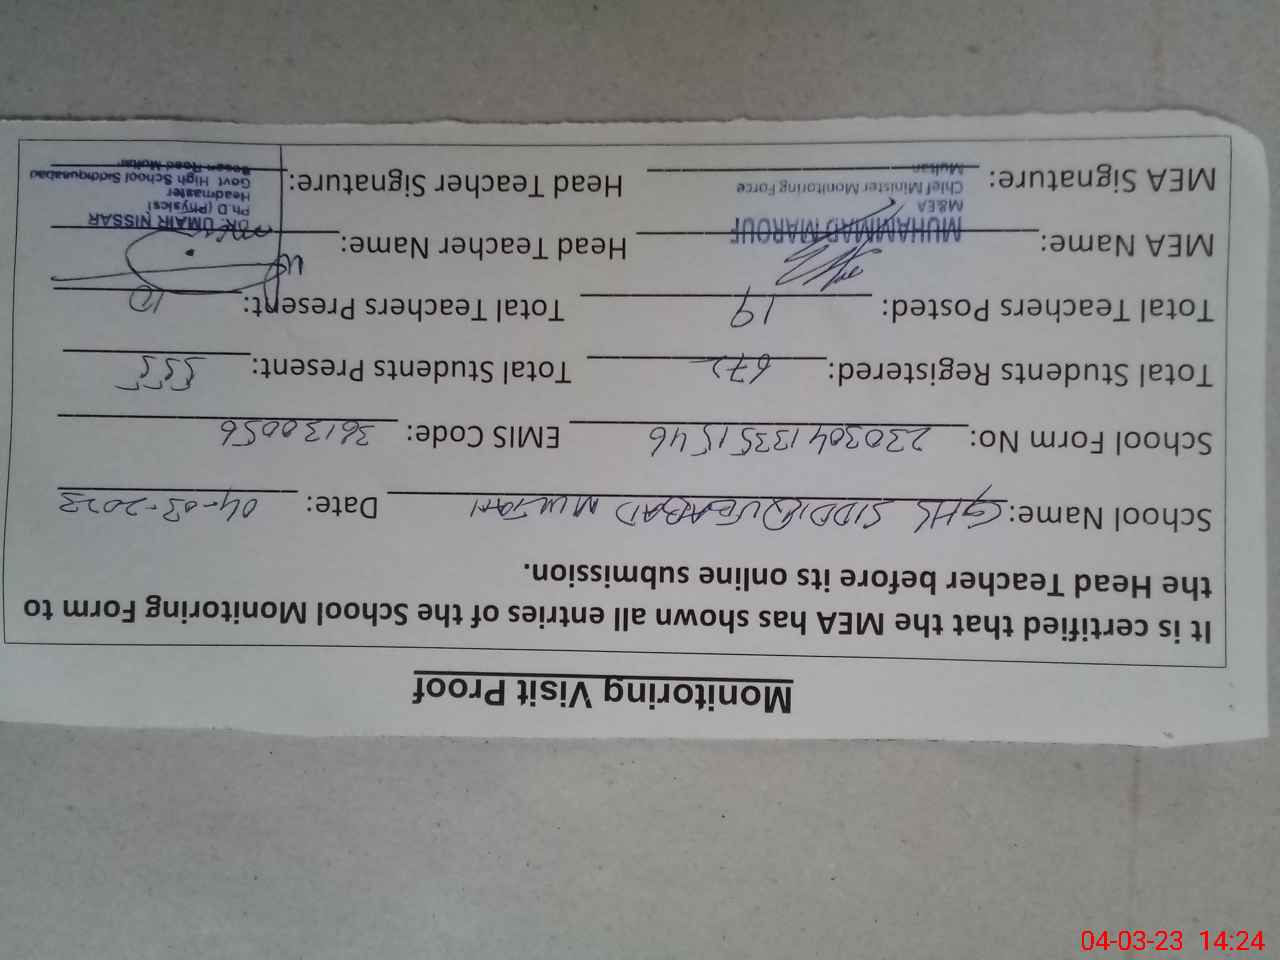 Monitoring Visit Proof
It is certified that the MEA has shown all entries of the School Monitoring Form to
the Head Teacher before its online submission.
School Name: GHS SIDDIQUEABAD MULTAN Date: 04-03-2023
School Form No: 23030413351546 EMIS Code: 36130056
Total Students Registered: 672 Total Students Present: 555
Total Teachers Posted: 19 Total Teachers Present: 10
MEA Name: MUHAMMAD MAROUF Head Teacher Name: DR. UMAIR NISSAR
M&EA Ph.D (Physics)
Chief Minister Monitoring Force Headmaster
MEA Signature: Multan Head Teacher Signature: Govt High School Siddiquabad
Bosan Road Multan
04-03-23 14:24